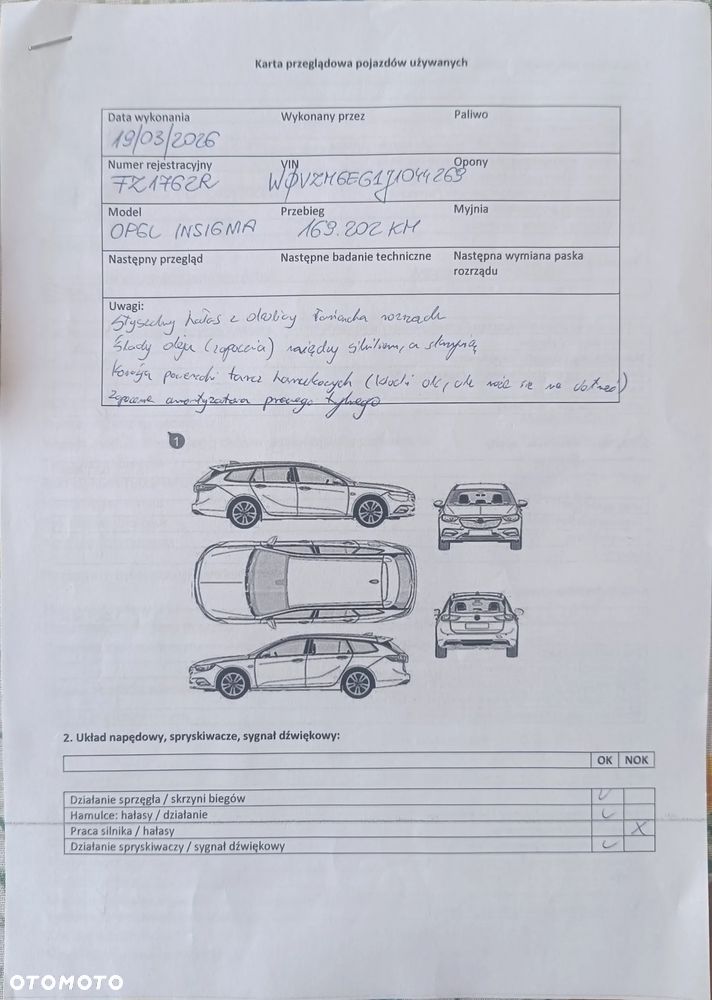 Karta przeglądowa pojazdów używanych
Data wykonania Wykonany przez Paliwo
19/03/2026
Numer rejestracyjny VIN Opony
FZ1762R W0VZM6EG1J1044269
Model Przebieg Myjnia
OPEL INSIGNIA 169.202 KM
Następny przegląd Następne badanie techniczne Następna wymiana paska rozrządu
Uwagi:
Słyszalny hałas z okolicy łańcucha rozrządu
Ślady oleju (zapocenia) między silnikiem, a skrzynią
Korozja powierzchni tarcz hamulcowych (klocki ok, ale może się na dotrzeć)
Zapocenie amortyzatora prawego tylnego
1
2. Układ napędowy, spryskiwacze, sygnał dźwiękowy:
OK NOK
Działanie sprzęgła / skrzyni biegów
Hamulce: hałasy / działanie
Praca silnika / hałasy X
Działanie spryskiwaczy / sygnał dźwiękowy
OTOMOTO